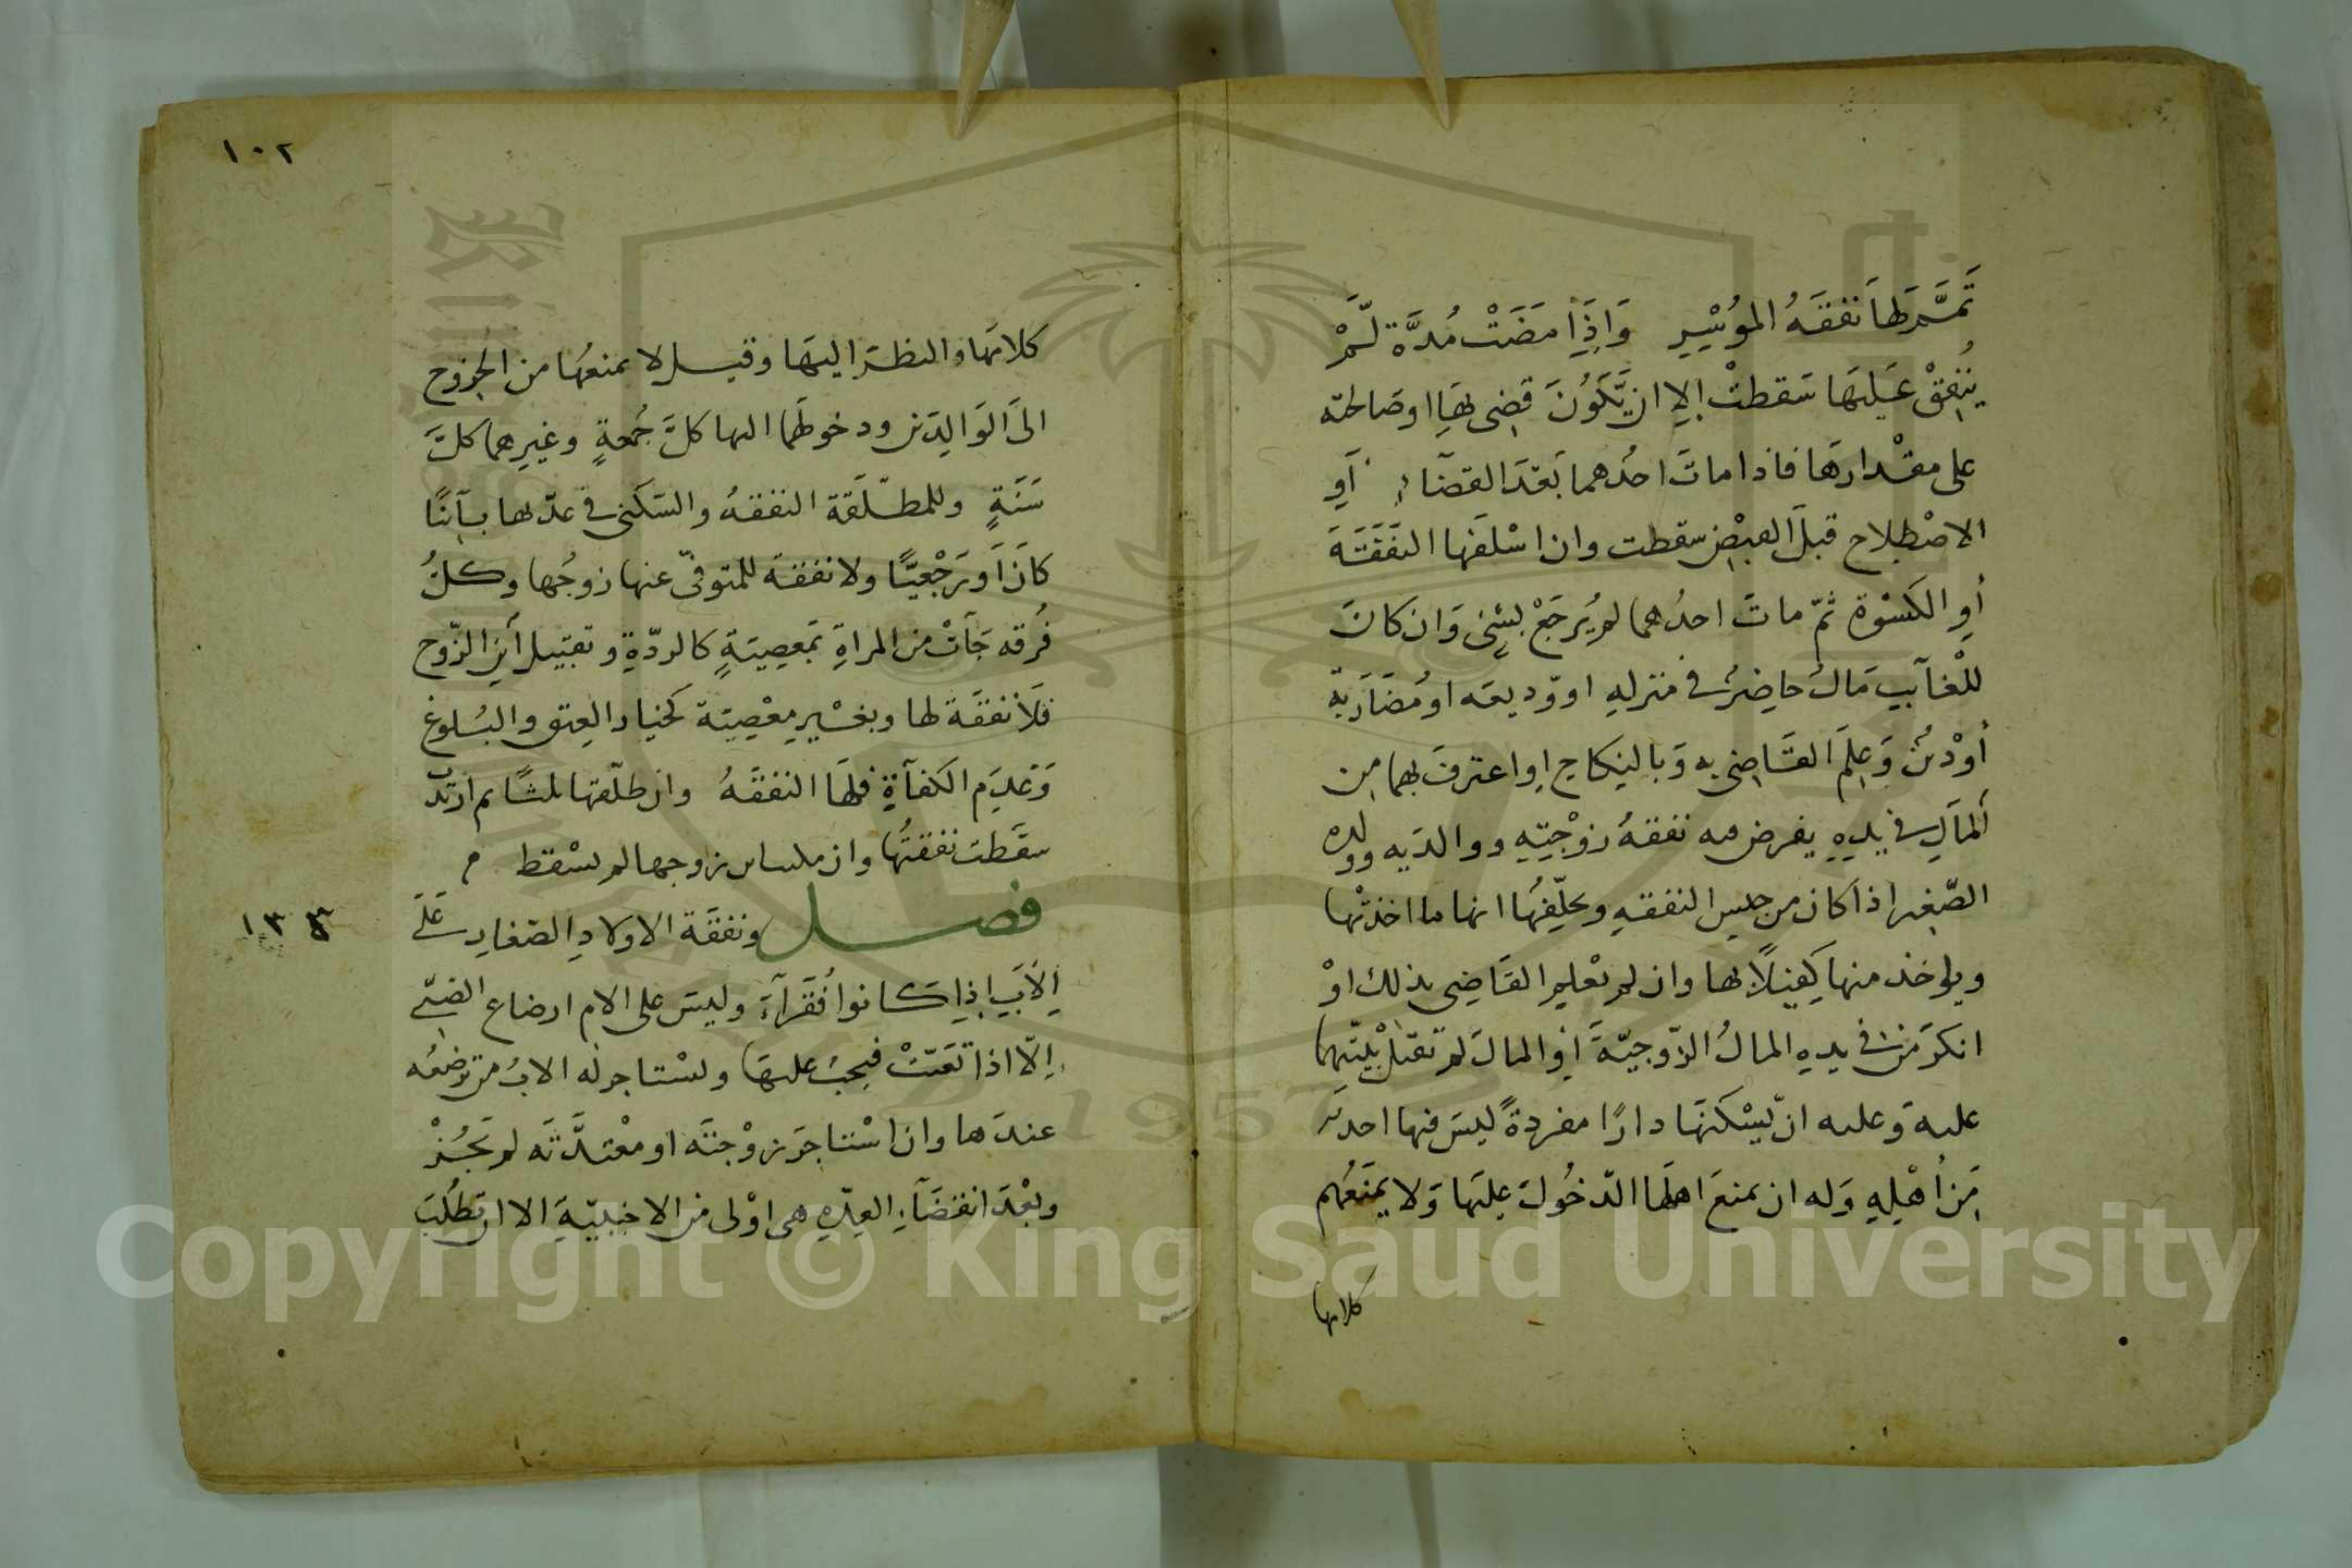 تمم لها نفقه الموسر واذا مضت مدة لم
ينفق عليها سقطت الا ان يكون قضى بها او صالحته
على مقدارها فاذا مات احدهما بعد القضاء او
الاصطلاح قبل القبض سقطت وان اسلفها النفقة
او الكسوة ثم مات احدهما لم يرجع بشئ وان كان
للغايب مال حاضر فى منزله او وديعه او مضاربة
او دين وعلم القاضى به وبالنكاح او اعترف بهما من
المال فى يده يفرض فيه نفقة زوجته ووالديه وولده
الصغير اذا كان من جنس النفقه ويحلفها انها ما اخذتها
وياخذ منها كفيلا بها وان لم يعلم القاضى بذلك او
انكر من فى يده المال الزوجية او المال لم تقبل بينتها
عليه وعليه ان يسكنها دارا مفردة ليس فيها احد
من اهله وله ان يمنع اهلها الدخول عليها ولا يمنعهم
كلامها
١٠٢
كلامها والنظر اليها وقيل لا يمنعها من الخروج
الى الوالدين ودخولهما اليها كل جمعة وغيرهما كل
سنة وللمطلقة النفقة والسكنى فى عدتها باينا
كان او رجعيا ولا نفقة للمتوفى عنها زوجها وكل
فرقه جات من المراة بمعصية كالردة وتقبيل ابن الزوج
فلا نفقة لها وبغير معصية كخيار العتق والبلوغ
وعدم الكفآة فلها النفقة وان طلقها ثلثا ثم ارتدت
سقطت نفقتها وان ملت ابن زوجها لم تسقط
فصل ونفقة الاولاد الصغار على
١٣٣
الاب اذا كانوا فقرآء وليس على الام ارضاع الصبى
الا اذا تعينت فيجب عليها ويستاجر له الاب من ترضعه
عندها وان استاجر زوجته او معتدته لم يجز
وبعد انقضآء العدة هى اولى من الاجنبية الا ان تطلب
Copyright © King Saud University
1957